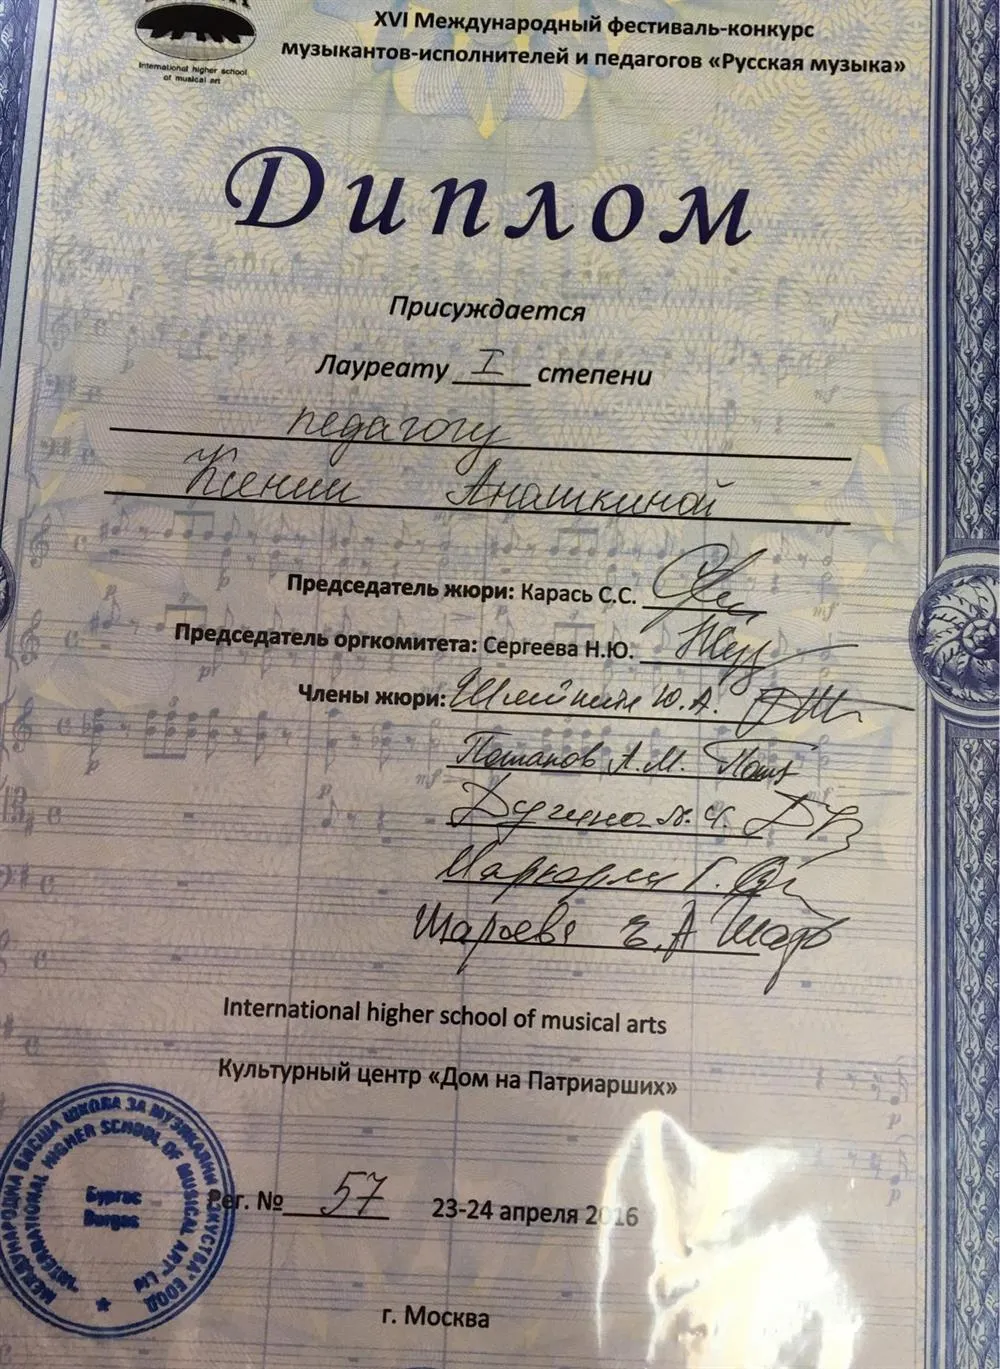 International higher school
of musical art
XVI Международный фестиваль-конкурс
музыкантов-исполнителей и педагогов «Русская музыка»
Диплом
Присуждается
Лауреату I степени
педагогу
Ксении Анашкиной
Председатель жюри: Карась С.С.
Председатель оргкомитета: Сергеева Н.Ю.
Члены жюри: Ю.А.
Потапов А.М.
Дугина
Маркарян Г.
International higher school of musical arts
Культурный центр «Дом на Патриарших»
МЕЖДУНАРОДНА ВИСША ШКОЛА ЗА МУЗИКАЛНИ ИЗКУСТВА" ЕООД
"INTERNATIONAL HIGHER SCHOOL OF MUSICAL ART" LTD
Бургас
Burgas
Рег. № 57 23-24 апреля 2016
г. Москва